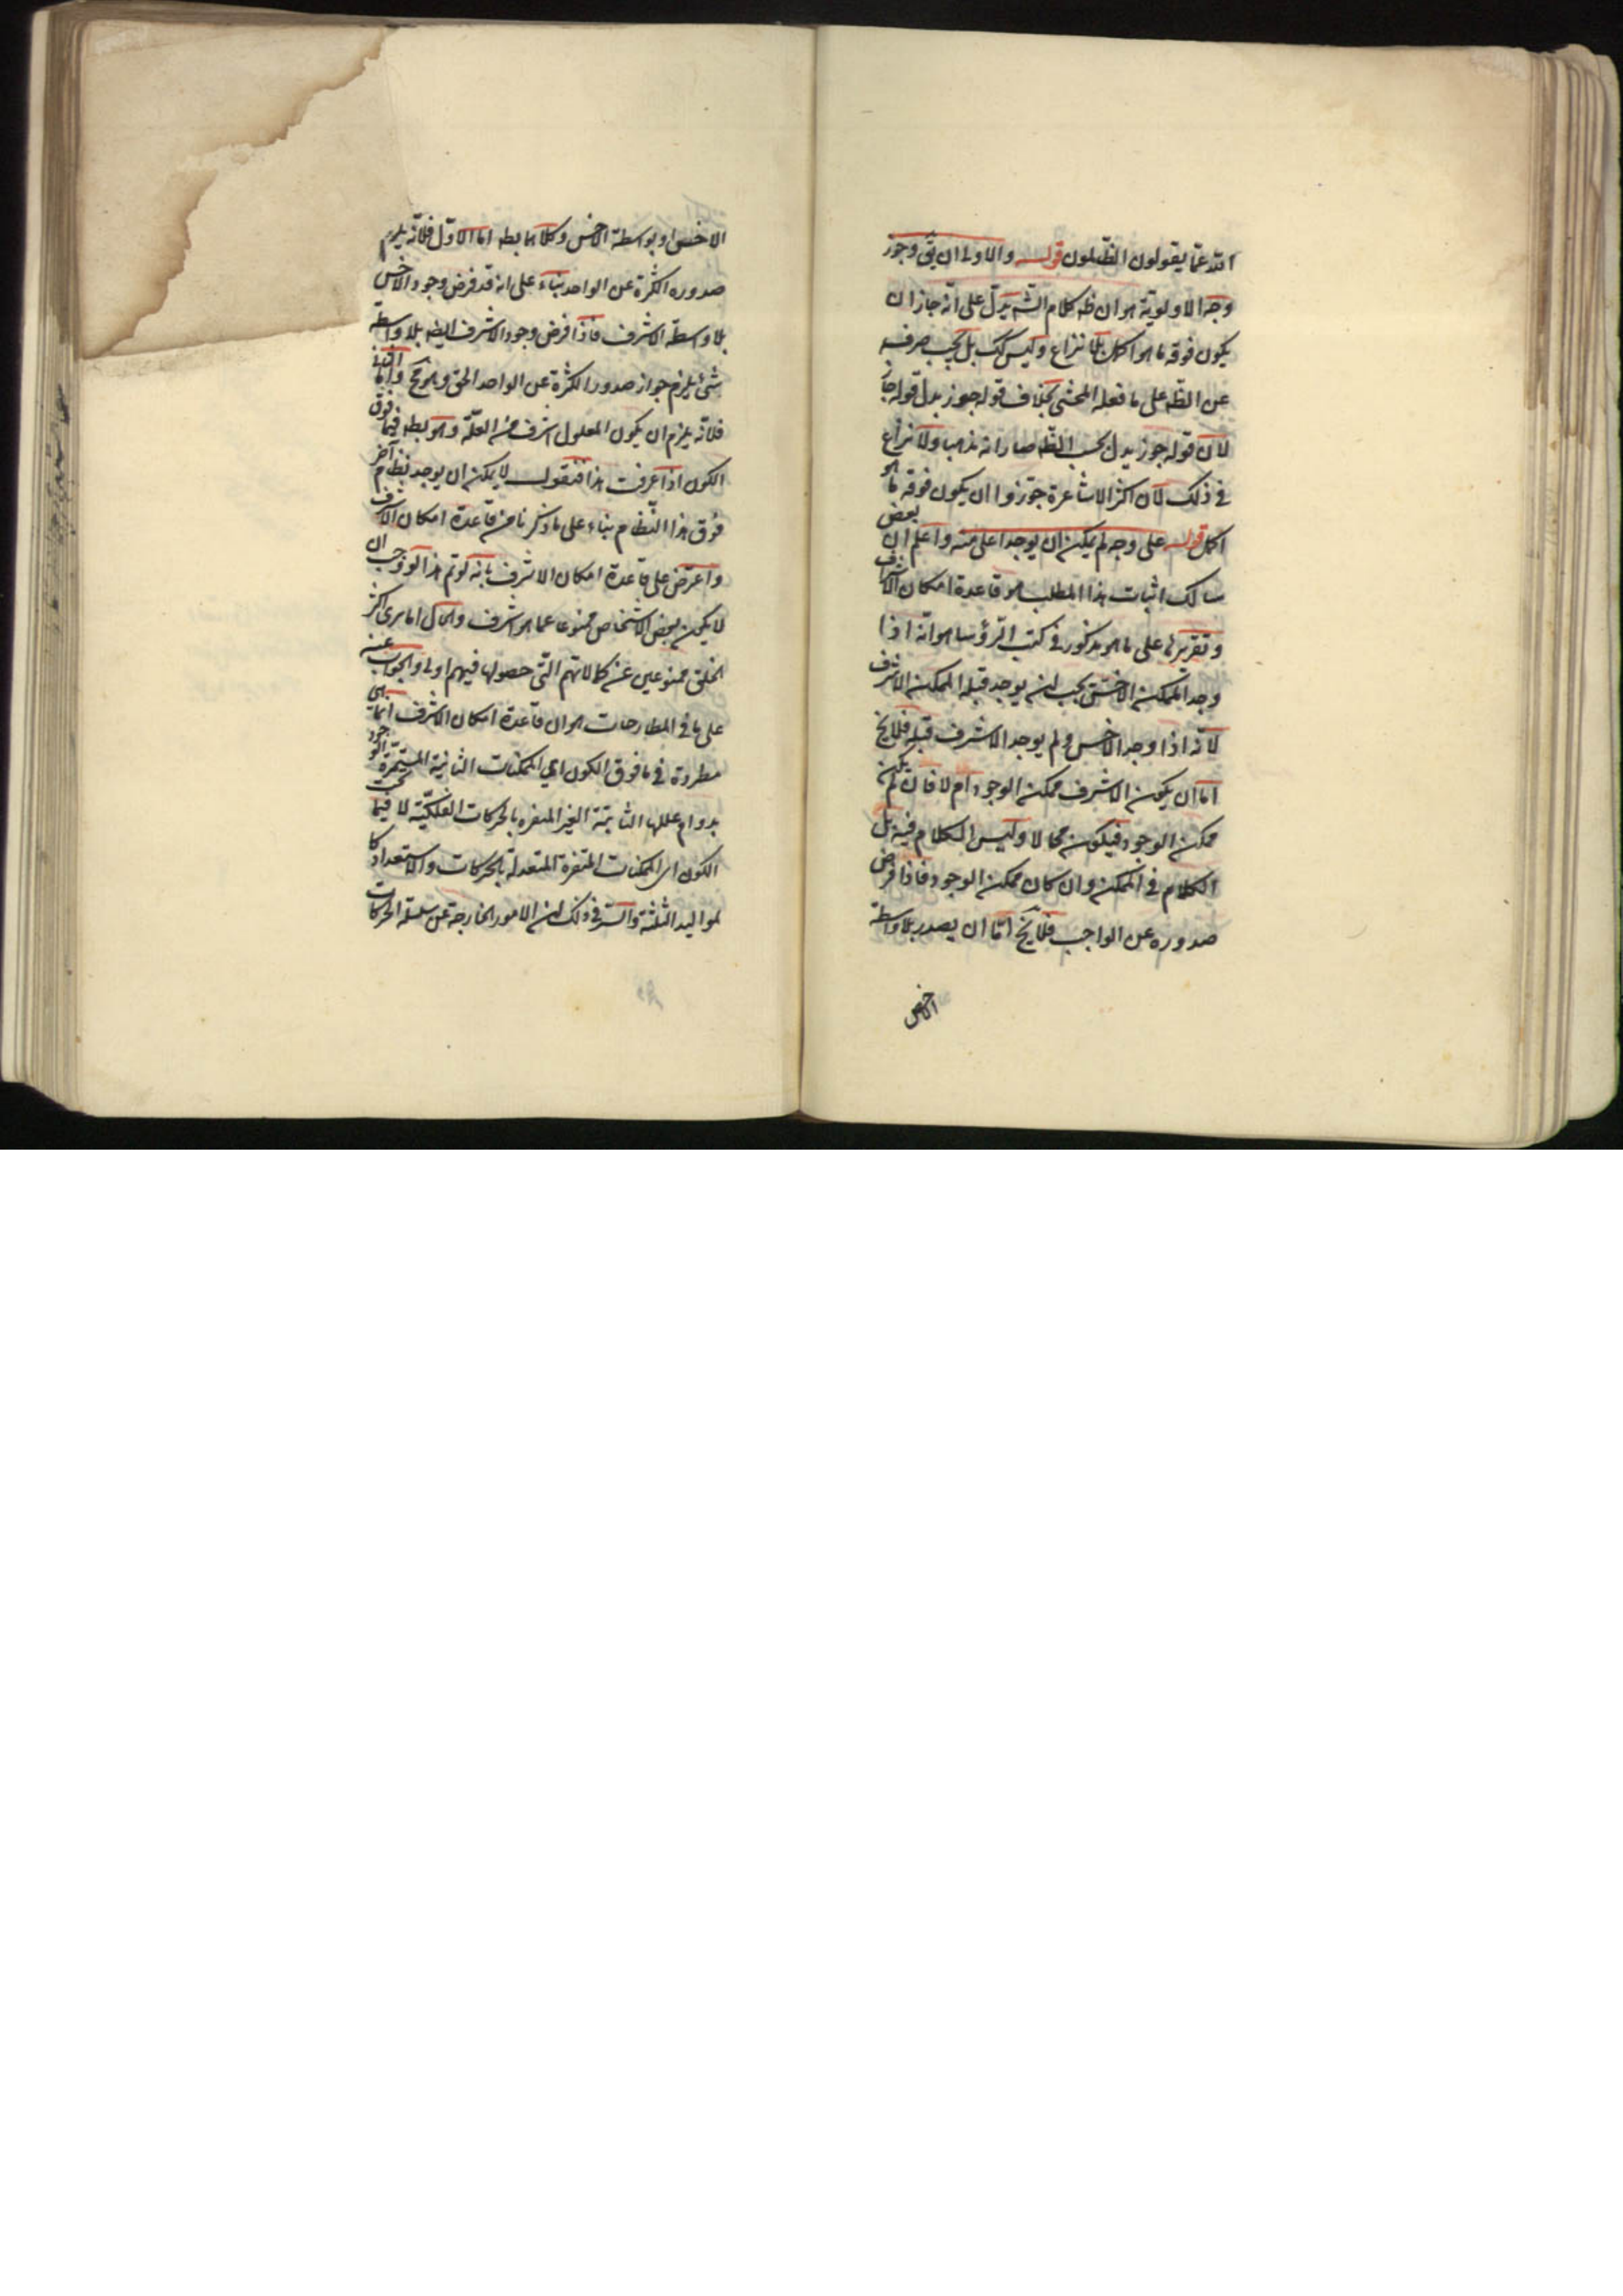 الله عمّا يقولون الظّلمون قوله والاولى ان يقٓ وجوز
وجه الاولويّة هو ان ظه كلام الشه يدلّ على انّه جاز ان
يكون فوقه ما هو اكمل بلا نزاع وليس كك بل يجب صرفه
عن الظه على ما فعله المحشى بخلاف قوله جوز بدل قوله جاز
لان قوله جوز يدل بحسب الظه صار انه مذهب ولا نزاع
فى ذلك لان اكثر الاشاعرة جوّزوا ان يكون فوقه ما هو
اكمل قوله على وجه لم يمكن ان يوجد اعلى منه واعلم ان بعض
سالك اثبات هذا المطلب هو قاعدة امكان الاشرف
وتقريرها على ما هو مذكور فى كتب الرؤسا هو انّه اذا
وجد الممكن الاخسّ يجب ان يوجد قبله الممكن الاشرف
لانه اذا وجد الاخس ولم يوجد الاشرف قبله فلا يخ
اما ان يكون الاشرف ممكن الوجود ام لا فان لم يكن
ممكن الوجود فيكون محالا وليس الكلام فيه بل
الكلام فى الممكن وان كان ممكن الوجود فاذا فرض
صدوره عن الواجب فلا يخ امّا ان يصدر بلا واسطة
الاخس
الاخس او بواسطة الاخس وكلاهما بطه اما الاوّل فلانّه يلزم
صدوره الكثرة عن الواحد بناء على انه قد فرض وجود الاخس
بلا واسطة الاشرف فاذا فرض وجود الاشرف ايضه بلا واسطة
شئ يلزم جواز صدور الكثرة عن الواحد الحق وهو مح واما الثانى
فلانّه يلزم ان يكون المعلول اشرف من العلّة وهو بطه فيما فوق
الكون اذا عرفت هذا فنقول لا يمكن ان يوجد نظام آخر
فوق هذا النّظام بناء على ما ذكرنا من قاعدة امكان الاشرف
واعترض على قاعدة امكان الاشرف بانه لو تم هذا لوجب ان
لا يكون بعض الاشخاص ممنوعا عما هو اشرف والحال اما يرى اكثر
الخلق ممنوعين عن كمالاتهم التّى حصولها فيهم اولى والجواب عنه
على ما فى المطارحات هو ان قاعدة امكان الاشرف انما هى
مطردة فى ما فوق الكون اى الممكنات الثانية المستمرّة الوجود
بدوام عللها الثابتة الغير المتغره بالحركات الفلكيّة لا فيما تحت
الكون اى الممكنات المتغرة المتعدلة بالحركات والاستعداد كا
لمواليد الثلثة والسّر فى ذلك ان الامور الخارجة عن سلسلة الحركات